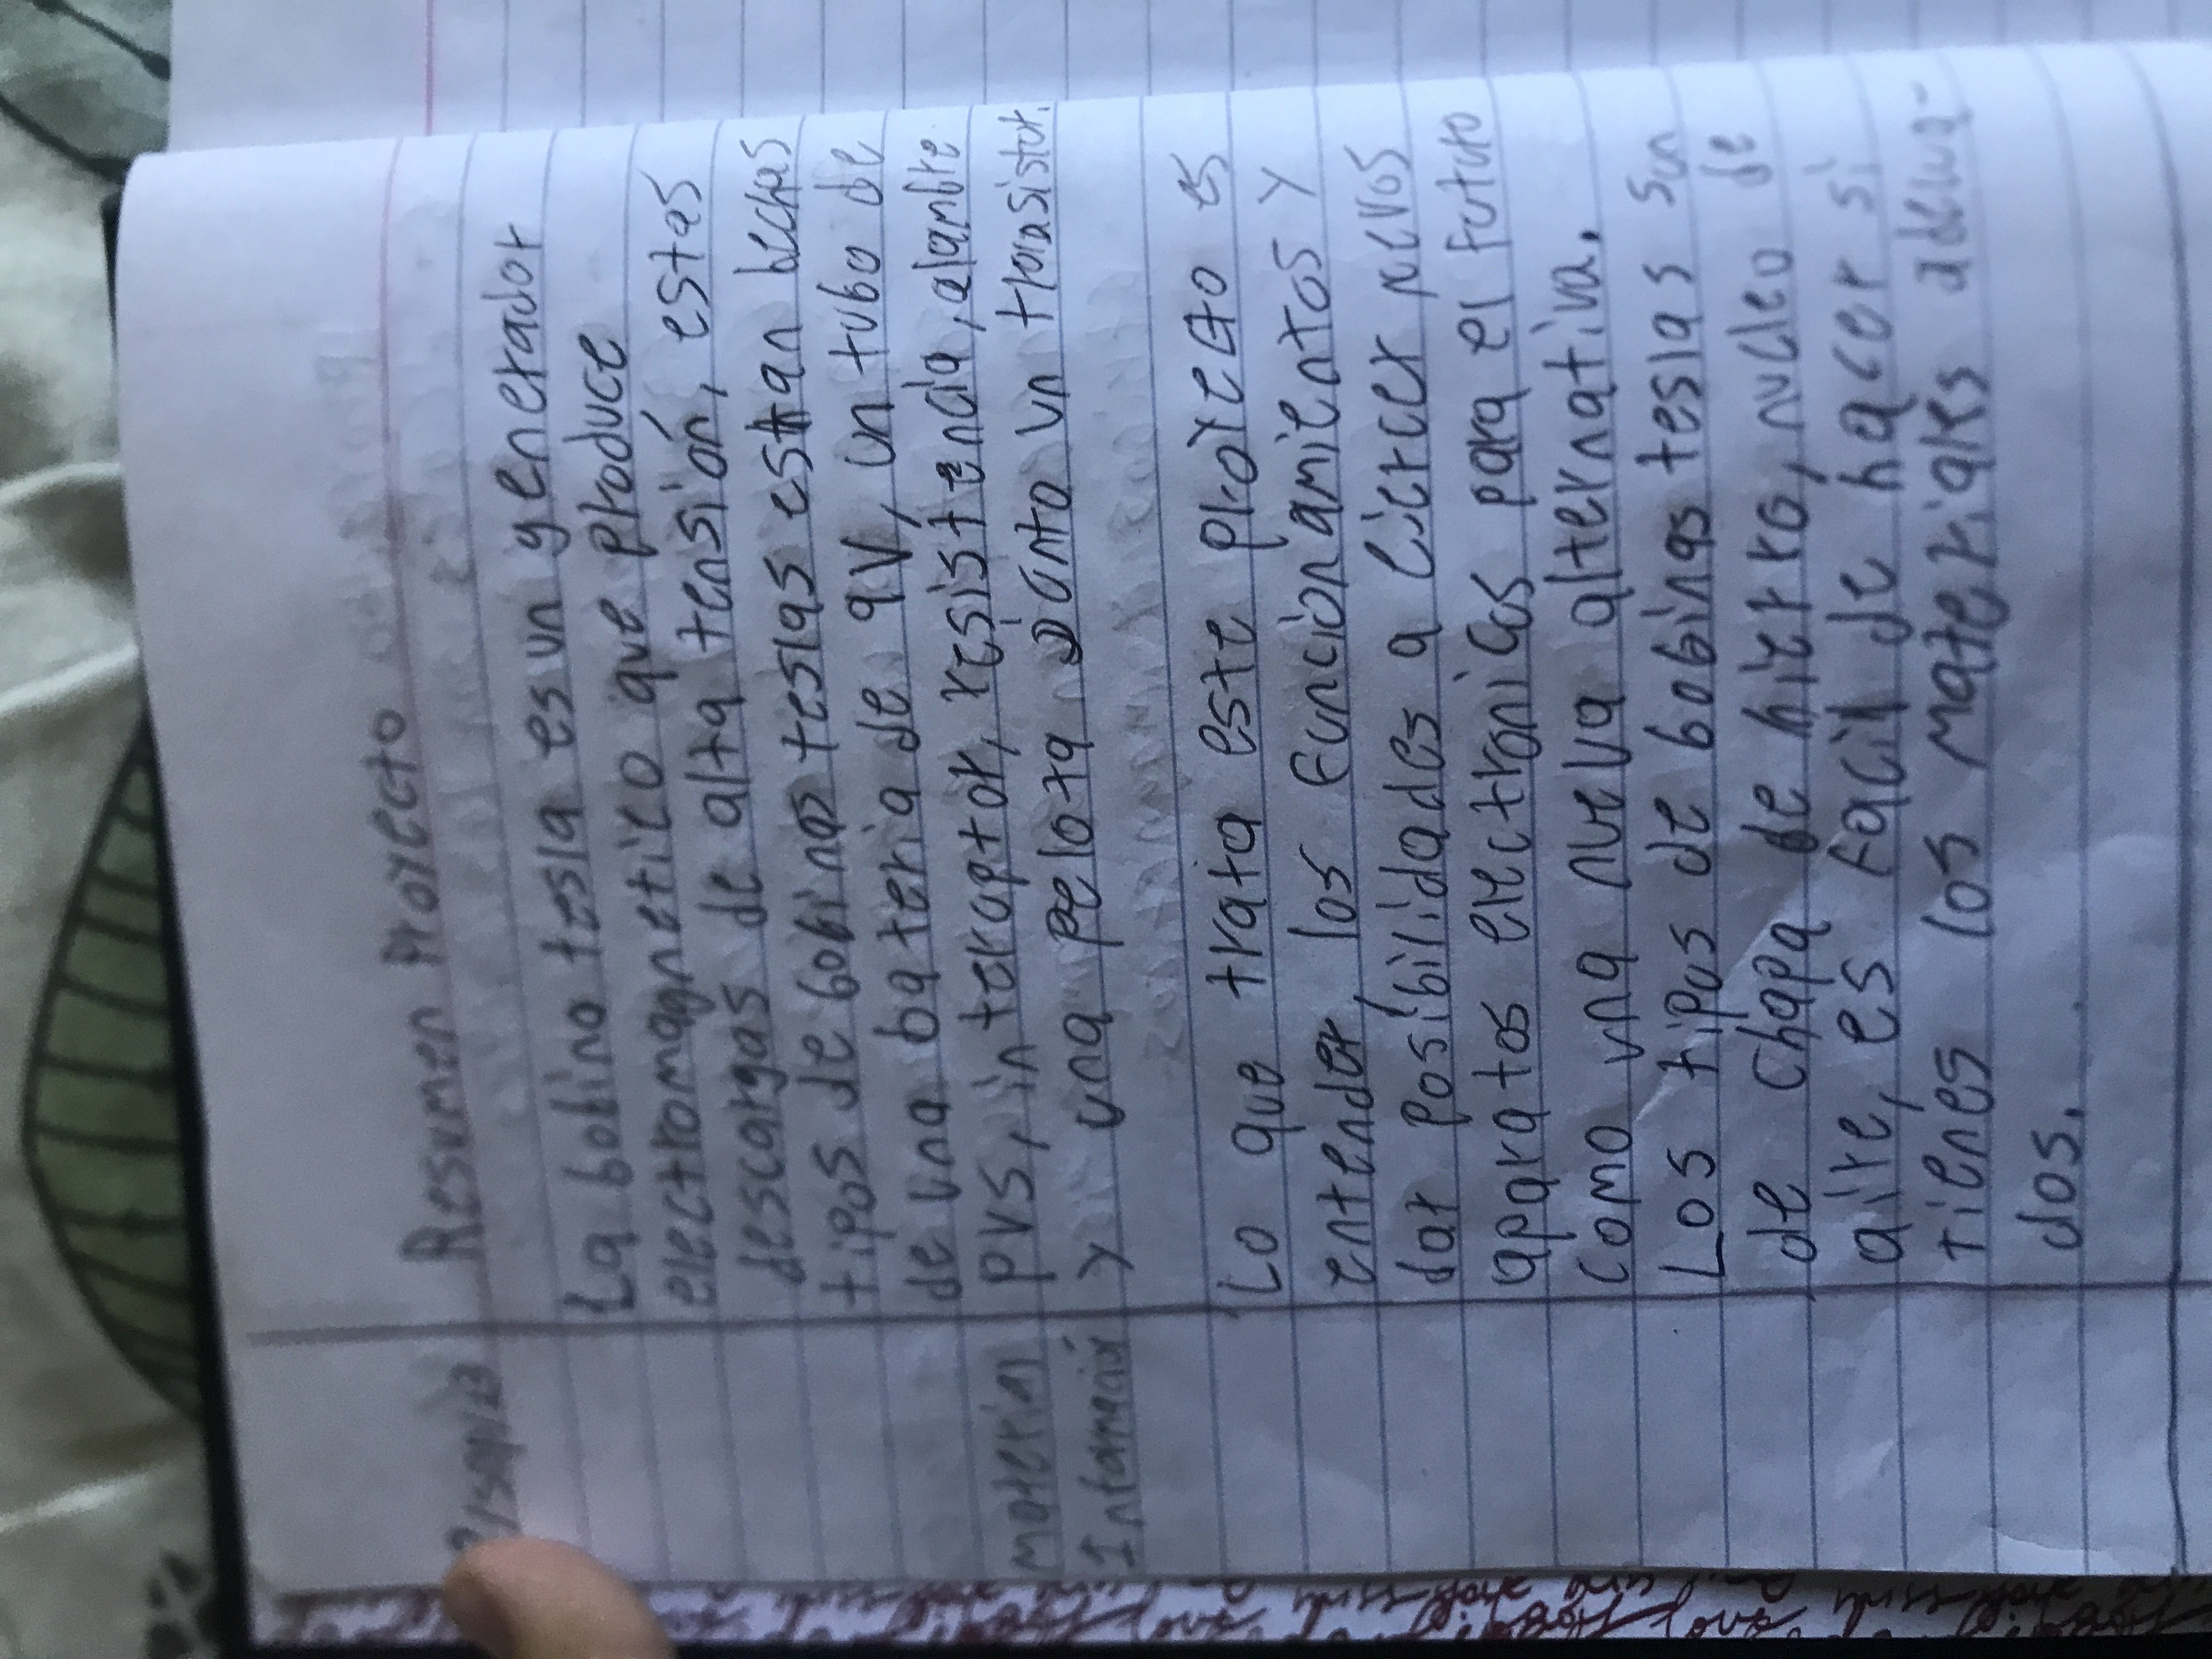 Resumen Proyecto
La bobina tesla es un generador
electromagnetico que produce
descargas de alta tensión, estas
tipos de bobinas teslas estan hechas
de una bateria de 9V, un tubo de
material PVS, interuptor, resistencia, alambre
y una pelota Junto un transistor.
Lo que trata este proyecto es
entender los funcionamientos y
dar posibilidades a creer nuevos
aparatos electronicos para el futuro
como una nueva alternativa.
Los tipos de bobinas teslas son
de chapa de hierro, nucleo de
aire, es facil de hacer si
tienes los materiales adecua-
dos.